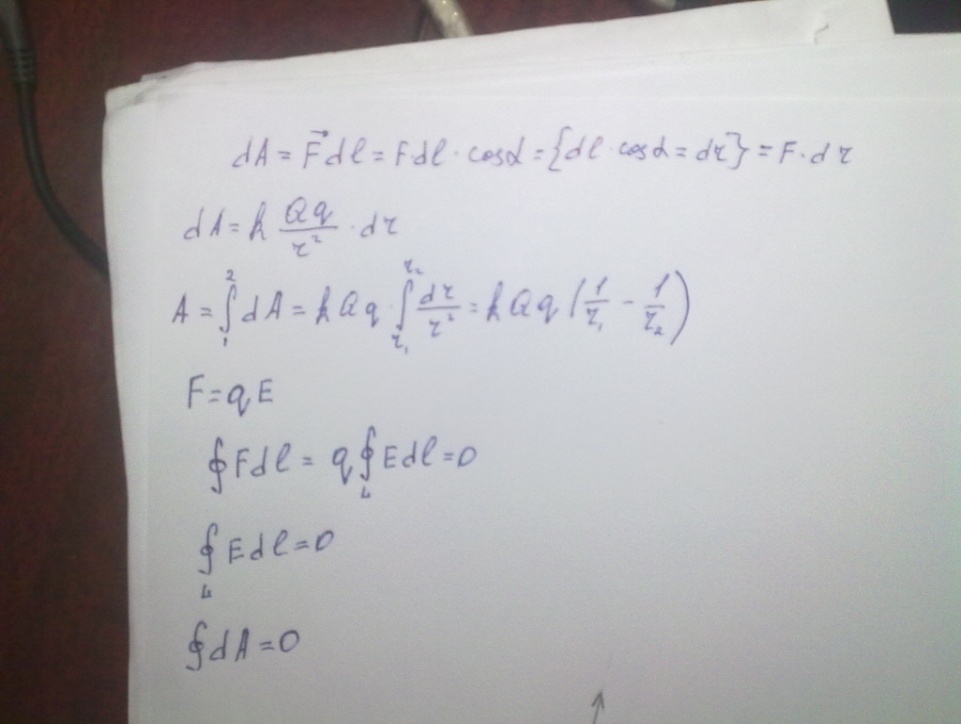 dA = F⃗dl = Fdl · cosα = {dl · cosα = dr} = F · dr
dA = k Qq/r² · dr
A = ∫₁² dA = kQq · ∫_{r₁}^{r₂} dr/r² = kQq (1/r₁ − 1/r₂)
F = qE
∮Fdl = q∮_L Edl = 0
∮_L Edl = 0
∮dA = 0